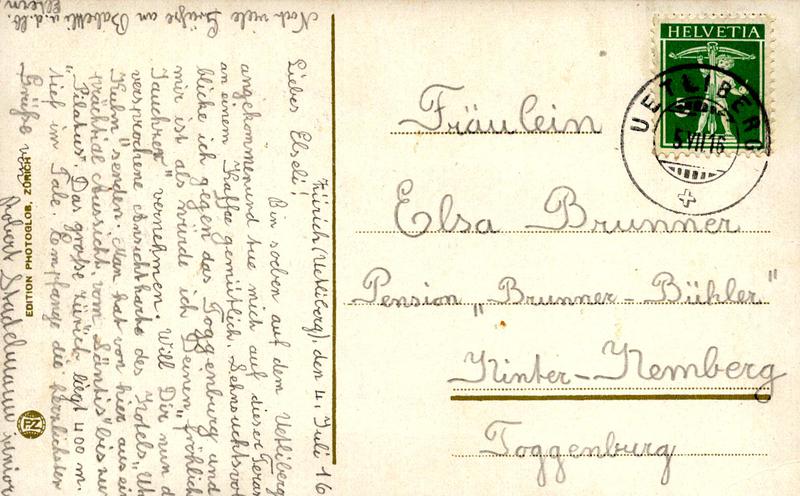 Zürich (Uetliberg), den 4. Juli 16
Liebes Elseli!
Bin soeben auf dem Uetliberg
angekommen und tue mich auf dieser Teras
an einem Kaffe gemütlich. Sehnsuchtsvoll
blicke ich gegen das Toggenburg und
mir ist als würde ich Deinen „fröhlich
Jauchzer" vernehmen. Will Dir nun d
versprochene Ansichtkarte des Hotels „Ut
Kulm" senden. Man hat von hier aus ein
prächtige Aussicht, vom „Säntis" bis zur
„Pilatus". Das große Zürich liegt 400 m.
tief im Tale. Empfange die herzlichsten
Grüße v.
Robert Stadelmann junior
Noch viele Grüße an Babettli u. d. lb.
Eltern
EDITION PHOTOGLOB, ZÜRICH
PZ
HELVETIA
5
UETLIBERG
5.VII.16
Fräulein
Elsa Brunner
Pension „Brunner-Bühler"
Hinter-Hemberg
Toggenburg